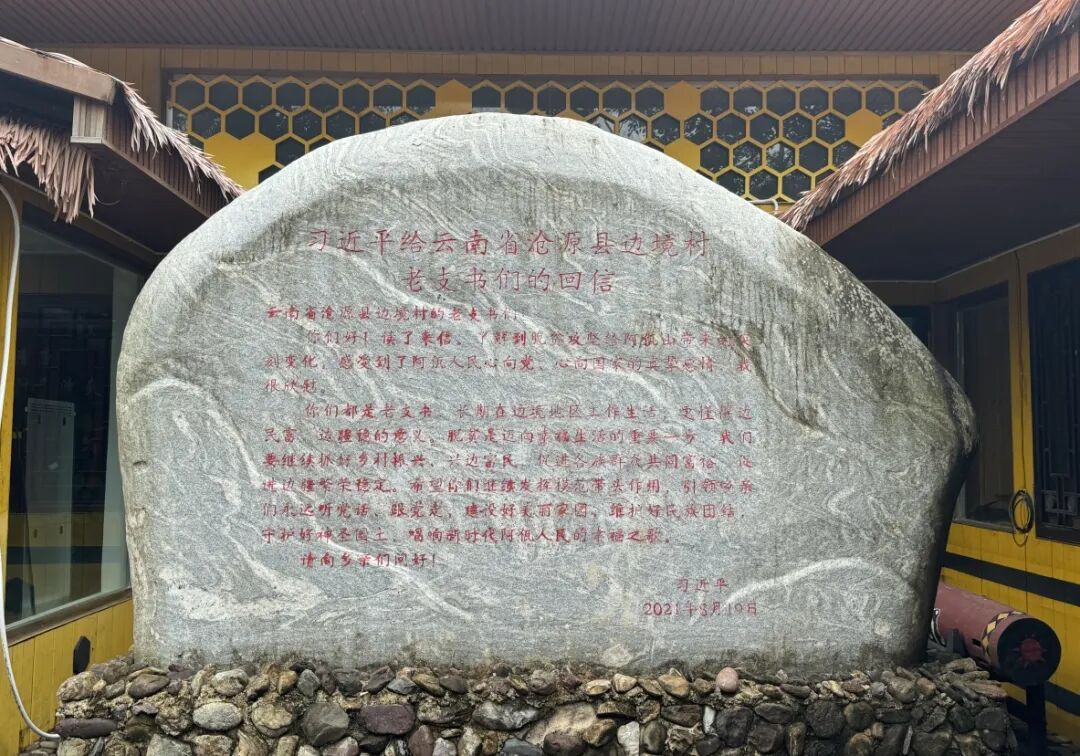 习近平给云南省沧源县边境村
老支书们的回信
云南省沧源县边境村的老支书们:
你们好!读了来信,了解到脱贫攻坚给阿佤山带来的深
刻变化,感受到了阿佤人民心向党、心向国家的真挚感情,我
很欣慰。
你们都是老支书,长期在边境地区工作生活,更懂得边
民富、边疆稳的意义。脱贫是迈向幸福生活的重要一步,我们
要继续抓好乡村振兴、兴边富民,促进各族群众共同富裕,促
进边疆繁荣稳定。希望你们继续发挥模范带头作用,引领乡亲
们永远听党话、跟党走,建设好美丽家园,维护好民族团结,
守护好神圣国土,唱响新时代阿佤人民的幸福之歌。
请向乡亲们问好!
习近平
2021年8月19日